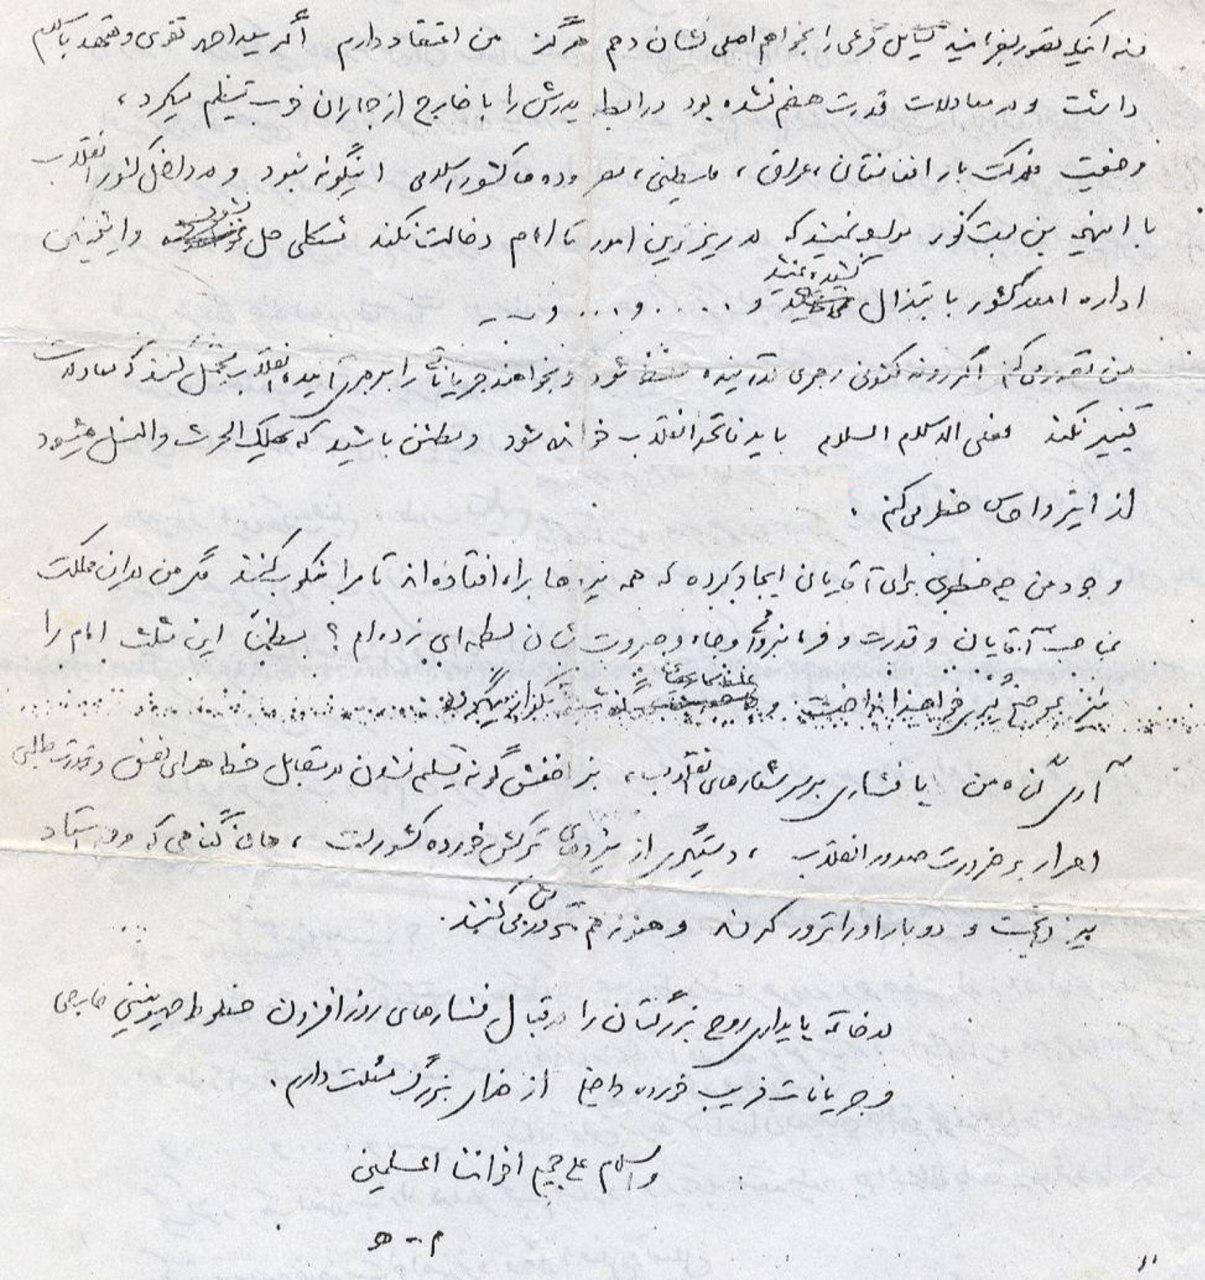 نه اینکه تصور بفرمائید مسایل فرعی را بخواهم اصلی نشان دهم هرگز من اعتقاد دارم اگر سید احمد تقوی و تعهد باسلام
داشت و در معادلات قدرت هضم نشده بود و رابطه پدرش را با خارج از جماران خوب تنظیم میکرد ،
وضعیت فلاکت بار افغانستان ، عراق ، فلسطین ، مصر و ده ها کشور اسلامی اینگونه نبود و در داخل کشور انقلاب
با اینهمه بن بست کور مواجه نمیشد که در ریزترین امور تا امام دخالت نکند مشکلی حل نشود و اینچنین
اداره امور کشور به ابتذال کشیده نمیشد و .... و ... و ..
من تصور می کنم اگر روند کنونی رهبری آینده شود و بخواهند جریاناتی را بر انقلاب تحمیل کنند که معادلات
تغییر نکند فعلی الاسلام السلام باید فاتحه انقلاب خوانده شود و مطمئن باشید که یهلک الحرث والنسل میشود
لذا اینرو احساس خطر می کنم .
وجود من چه خطری برای آقایان ایجاد کرده که همه نیروها براه افتاده اند تا مرا منکوب کنند مگر من در این مملکت
به مناصب آقایان و قدرت و فرمانروائی و جاه و جبروت شان لطمه ای زده ام ؟ مطمئناً این مثلث امام را
نیز خواهند انداخت و
آری گناه من پافشاری بر سر شعارهای انقلاب ، بز اخفش گونه تسلیم نشدن در مقابل خط هوای نفس و قدرت طلبی
اصرار بر ضرورت صدور انقلاب ، دستگیری از نیروهای ترکش خورده کشور است ، همان گناهی که استاد
نیز داشت و دو بار او را ترور کردند و هنوز هم ترورش می کنند .
در خاتمه پایداری روح بزرگتان را در قبال فشارهای روزافزون خطوط صهیونیستی خارجی
و جریانات فریب خورده داخلی از خدای بزرگ مسئلت دارم .
والسلام علی جمیع اخواننا المسلمین
م - ه